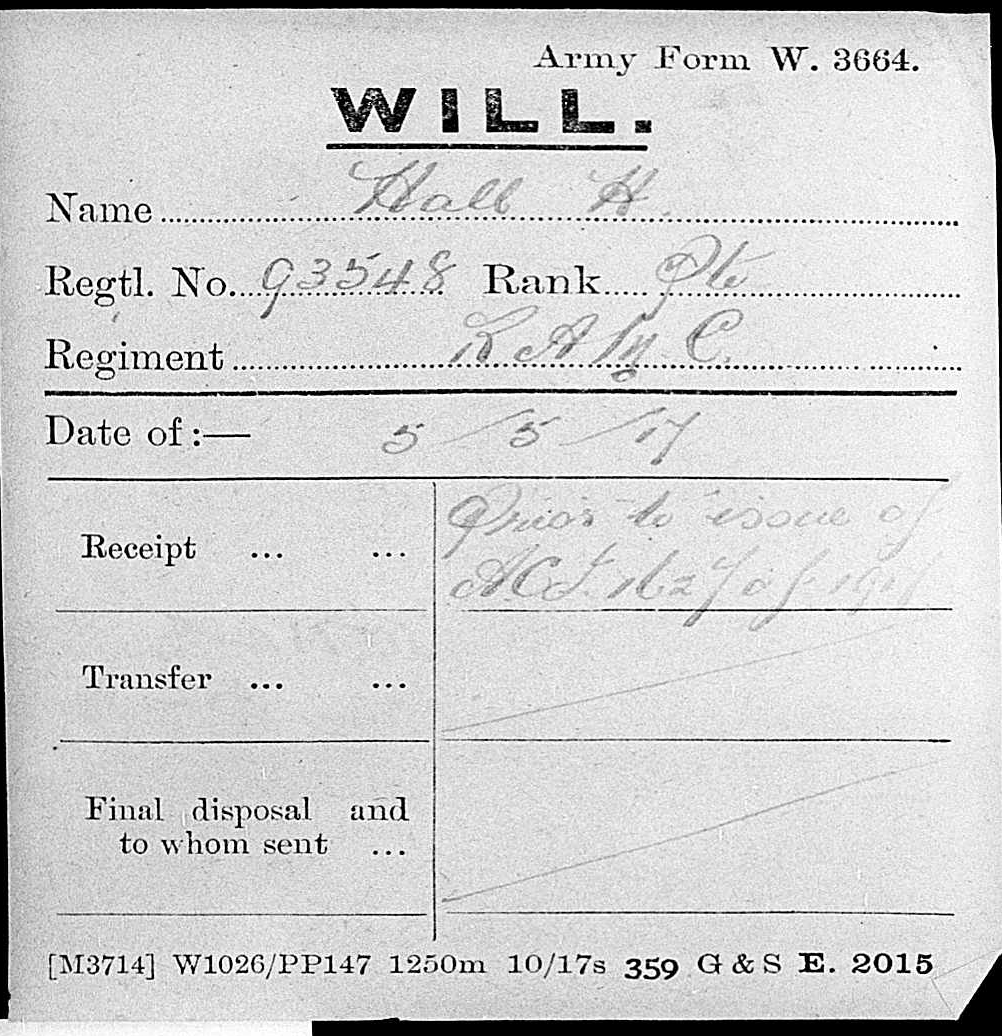 Army Form W. 3664.
WILL.
Name Hall H.
Regtl. No. 93548 Rank Pte
Regiment R.A.M.C.
Date of :— 5/5/17
Prior to issue of
Receipt ... ...
ACI. 1627 of 1917
Transfer ... ...
Final disposal and
to whom sent ...
[M3714] W1026/PP147 1250m 10/17s 359 G & S E. 2015